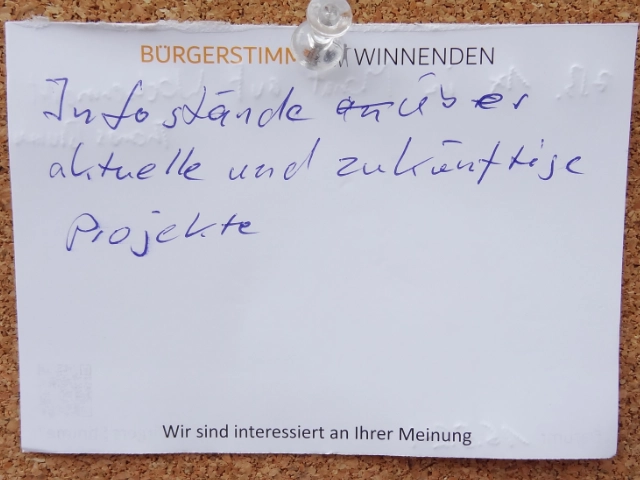 BÜRGERSTIMM WINNENDEN
Infostände über
aktuelle und zukünftige
Projekte
Wir sind interessiert an Ihrer Meinung